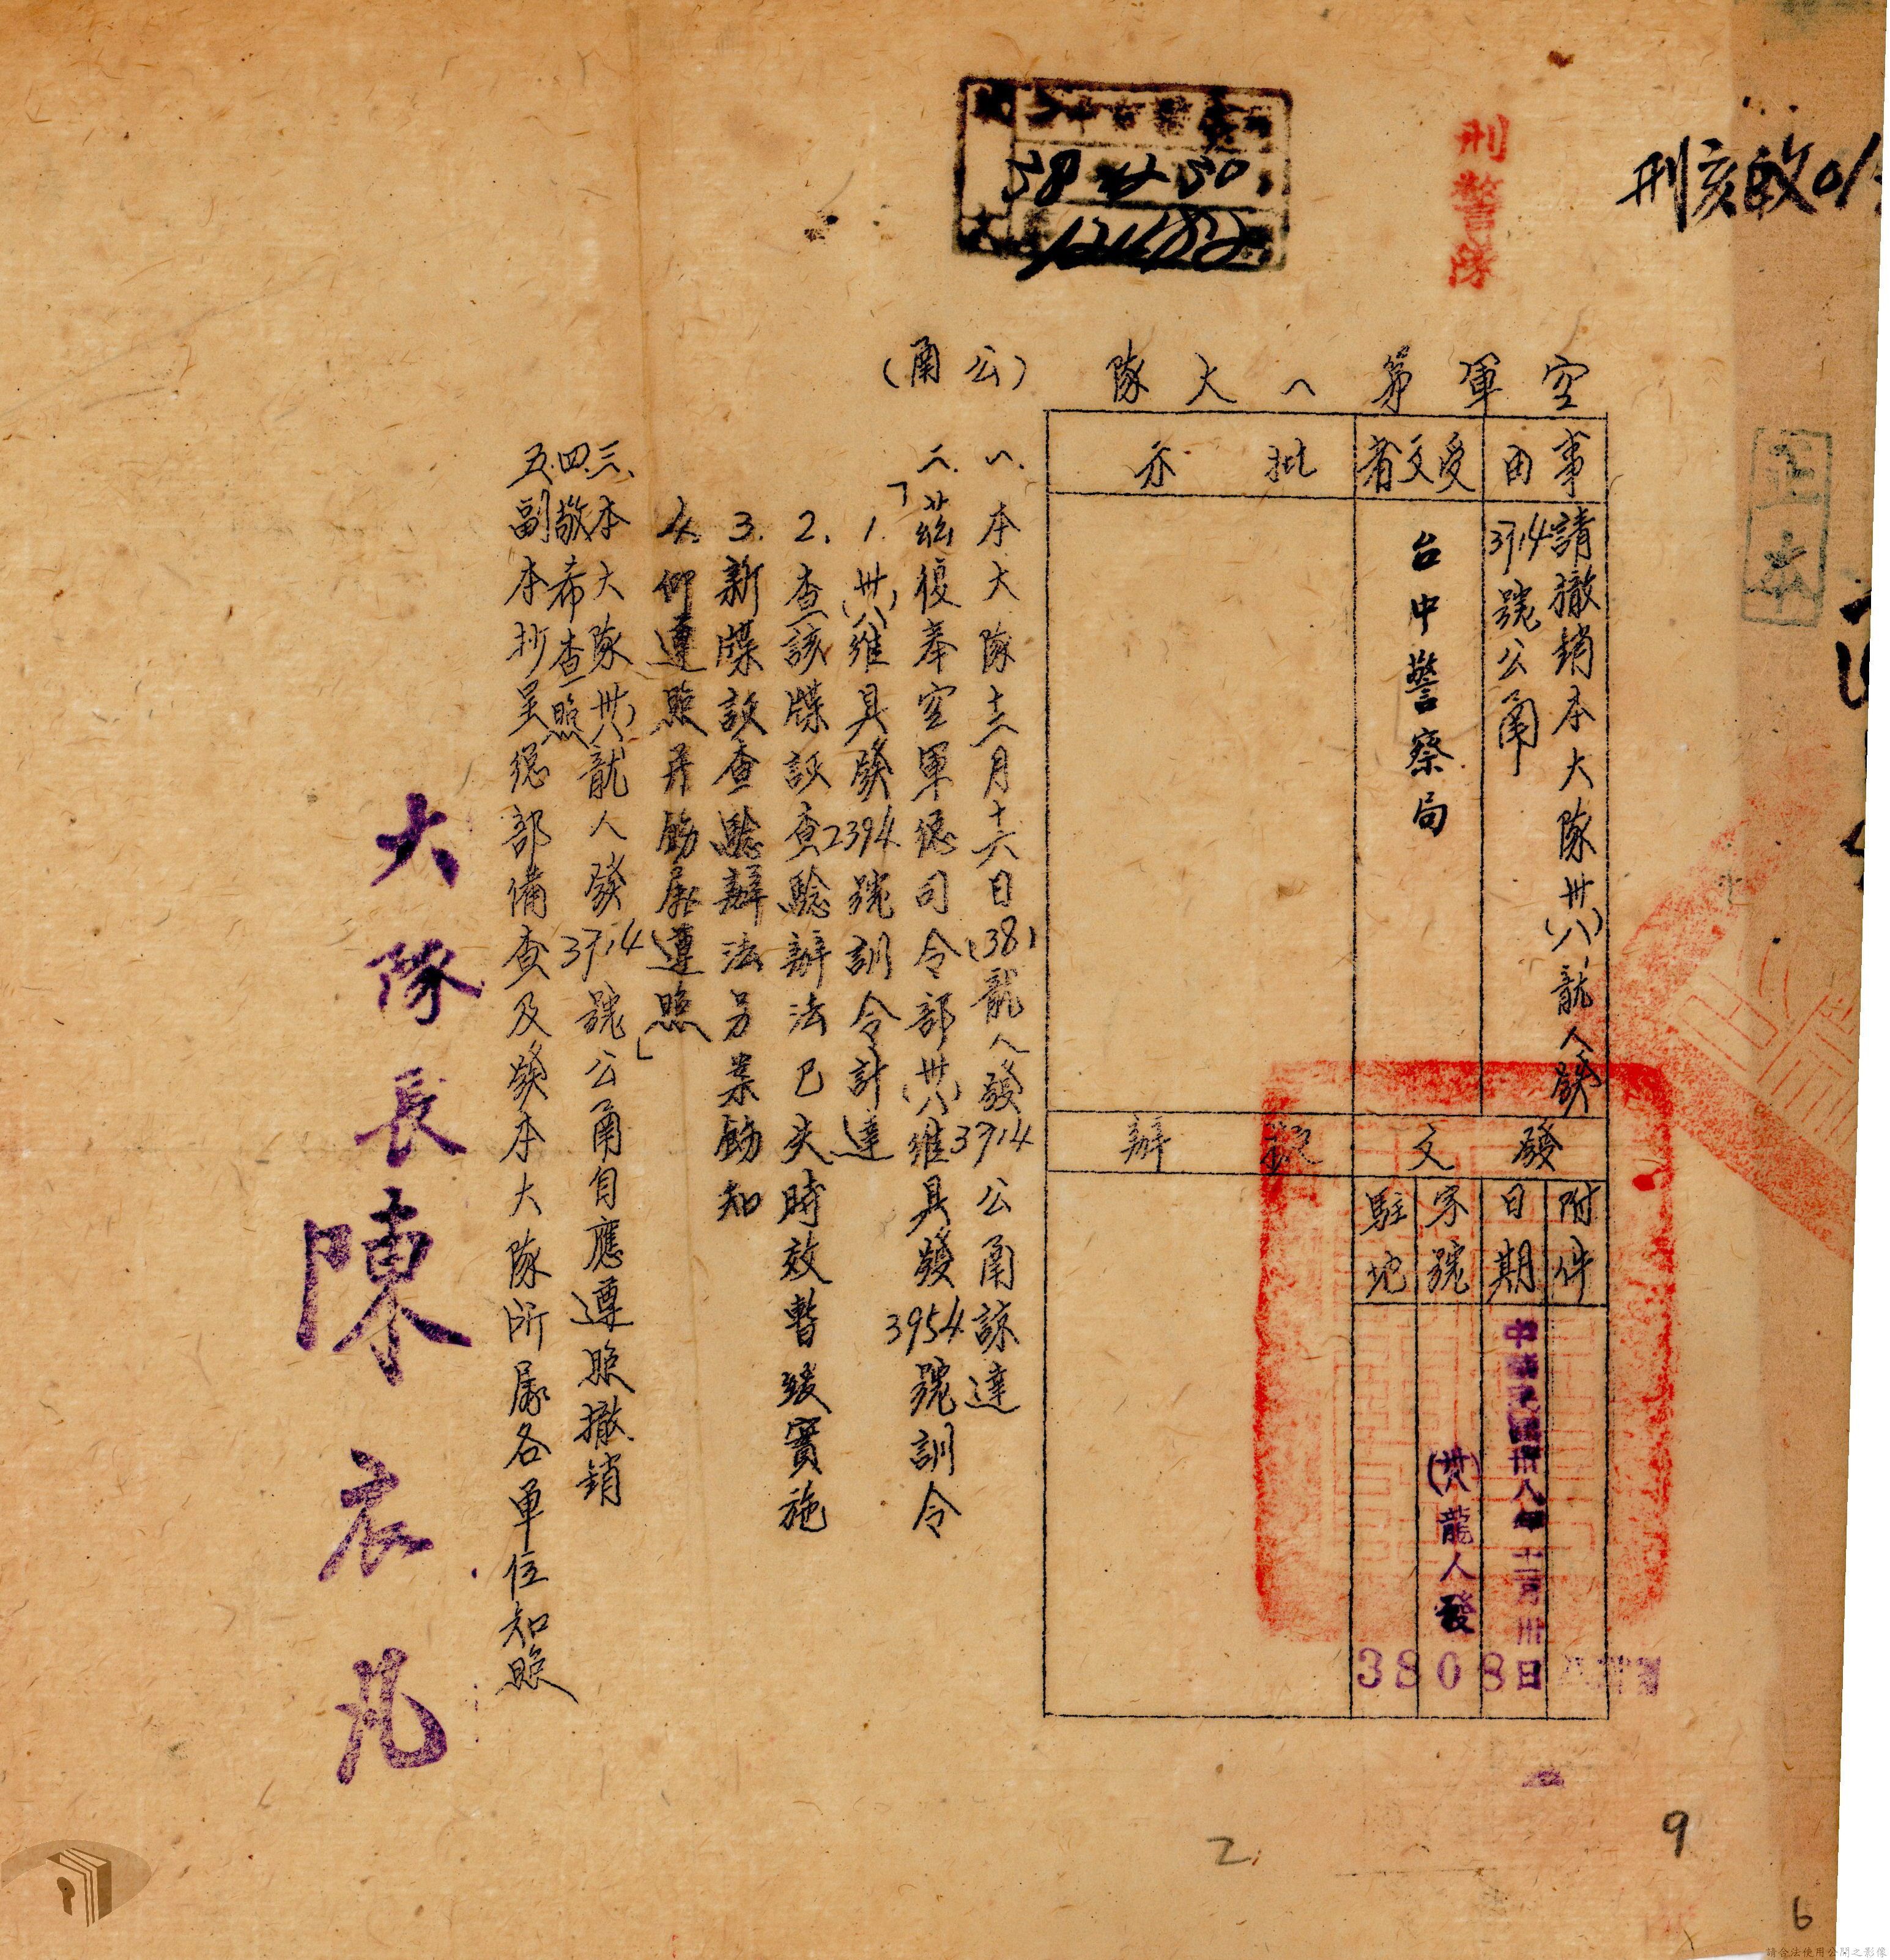 刑亥敢01
刑警隊
正本
38 12 30
空軍第八大隊
(公函)
事由
請撤銷本大隊卅(八)龍人發
3714號公函
受文者
台中警察局
批示
發文
擬辦
附件
日期
中華民國卅八年十二月卅日
字號
(卅八)龍人發
3808
駐地
一、本大隊十二月十六日(38)龍人發3714公函諒達
二、茲復奉空軍總司令部(卅八)維具發3954號訓令
「1.(卅八)維具發2394號訓令計達
2.查該牒訟查驗辦法已失時效暫緩實施
3.新牒訟查驗辦法另案飭知
4.仰遵照并飭屬遵照」
三、本大隊(卅八)龍人發3714號公函自應遵照撤銷
四、敬希查照
五、副本抄呈總部備查及發本大隊所屬各單位知照
大隊長陳衣凡
2
9
6
請合法使用公開之影像